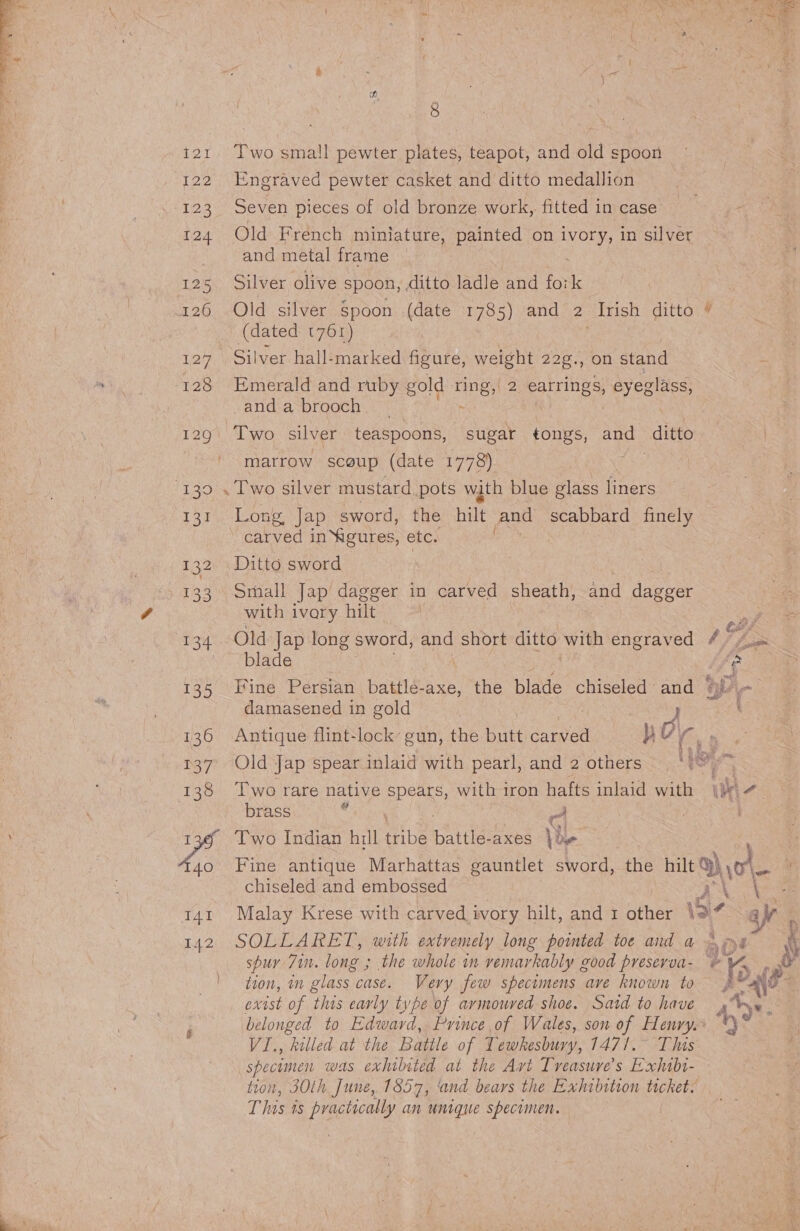 8
121 Two small pewter plates, teapot, and old spoon
122 Engraved pewter casket and ditto medallion
123 Seven pieces of old bronze work, fitted in case
124 Old French miniature, painted on ivory, in silver
and metal frame
125 Silver olive spoon, ditto ladle and fork
126 Old silver spoon (date 1785) and 2 Irish ditto
(dated 1761)
127 Silver hall-marked figure, weight 22g., on stand
128 Emerald and ruby gold ring, 2 earrings, eyeglass,
and a brooch
129 Two silver teaspoons, sugar tongs, and ditto
marrow scoup (date 1778)
130 Two silver mustard pots with blue glass liners
131 Long Jap sword, the hilt and scabbard finely
carved in figures, etc.
132 Ditto sword
133 Small Jap dagger in carved sheath, and dagger
with ivory hilt
134 Old Jap long sword, and short ditto with engraved
blade
135 Fine Persian battle-axe, the blade chiseled and
damasened in gold
136 Antique flint-lock gun, the butt carved
137 Old Jap spear inlaid with pearl, and 2 others
138 Two rare native spears, with iron hafts inlaid with
brass
139 Two Indian hill tribe battle-axes
140 Fine antique Marhattas gauntlet sword, the hilt
chiseled and embossed
141 Malay Krese with carved ivory hilt, and 1 other
142 SOLLARET, with extremely long pointed toe and a
spur 7in. long ; the whole in remarkably good preserva-
tion, in glass case. Very few specimens are known to
exist of this early type of armoured shoe. Said to have
belonged to Edward, Prince of Wales, son of Henry
VI., killed at the Battle of Tewkesbury, 1471. This
specimen was exhibited at the Art Treasure's Exhibi-
tion, 30th June, 1857, and bears the Exhibition ticket.
This is practically an unique specimen.